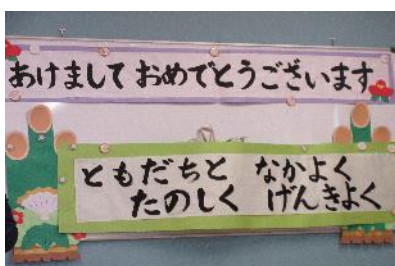 あけまして おめでとうございます
ともだちと なかよく
たのしく げんきよく